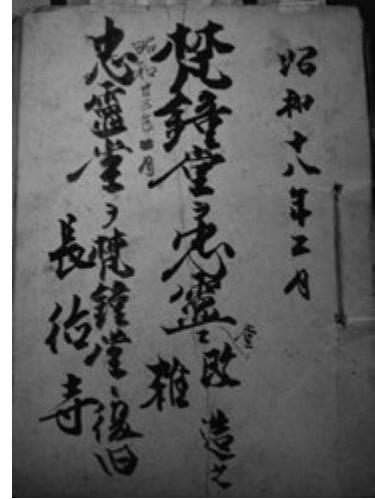 昭和十八年二月
梵鐘堂ヲ忠靈堂ニ改造之
雑
昭和廿三年四月
忠靈堂ヲ梵鐘堂ニ復旧
長徳寺